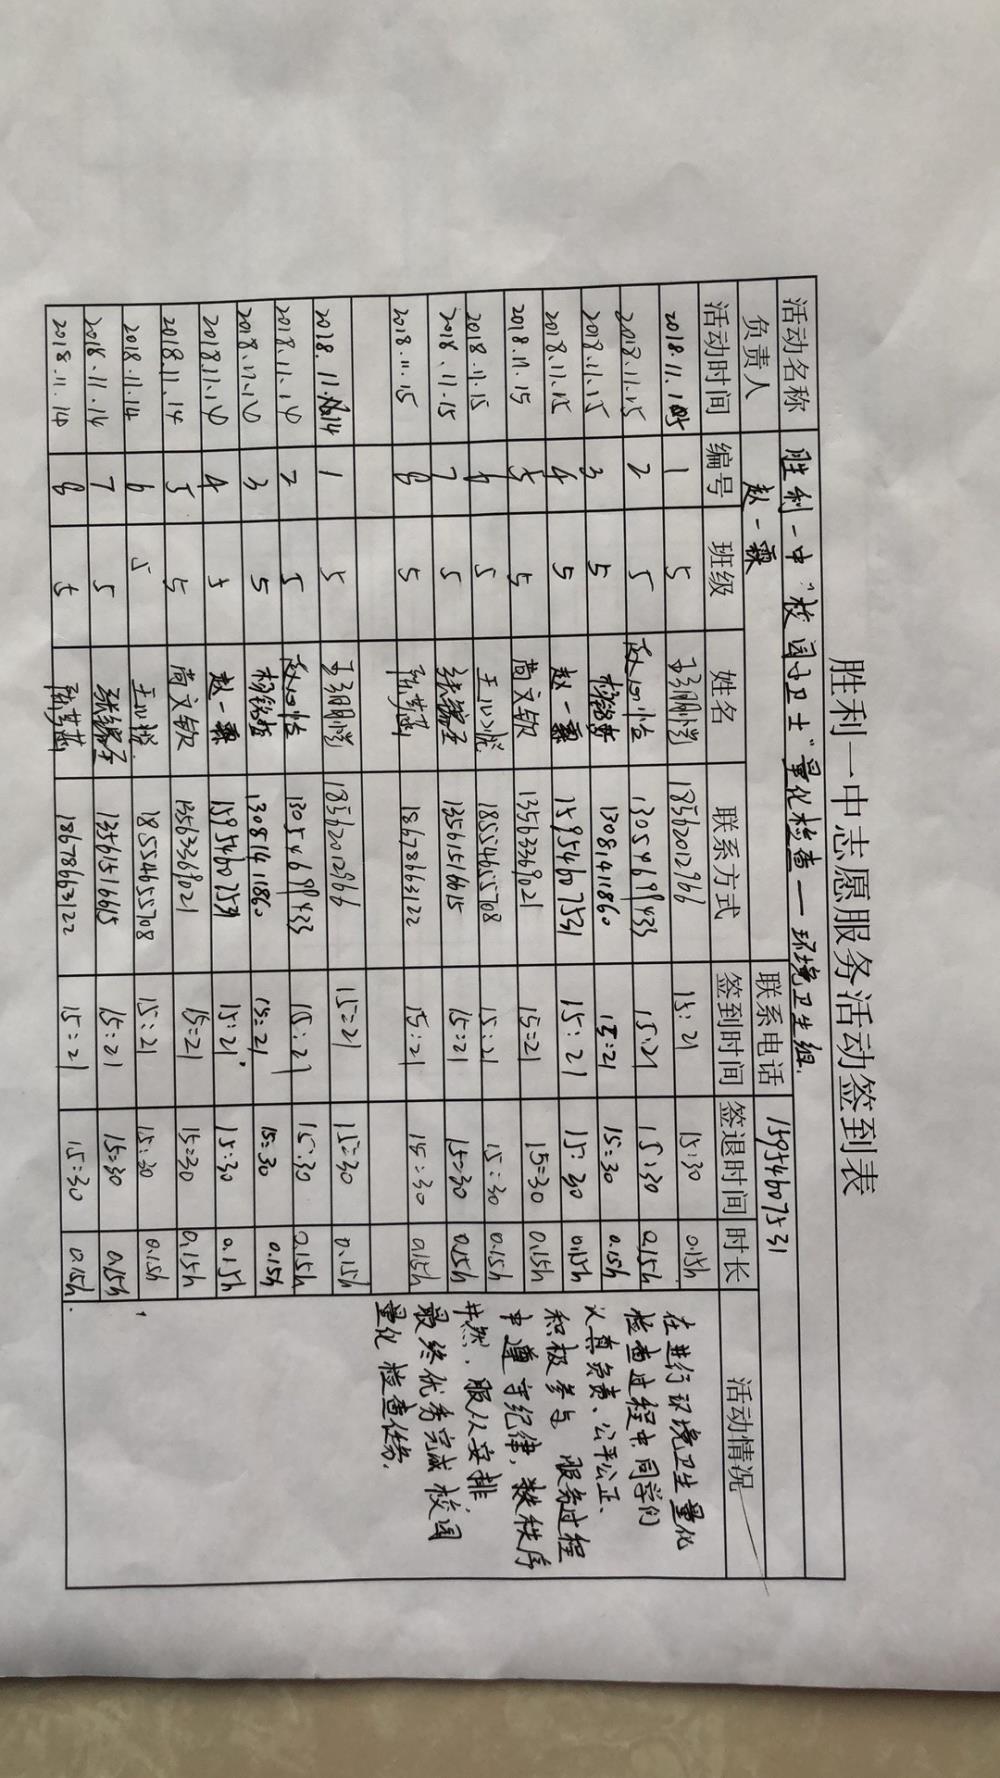 胜利一中志愿服务活动签到表
活动名称 胜利一中"校园卫士"量化检查——环境卫生组.
负责人 赵一霖 联系电话 15954607531
活动时间 编号 班级 姓名 联系方式 签到时间 签退时间 时长 活动情况
2018.11.15 1 5 18562012966 15:21 15:30 0.15h
2018.11.15 2 5 13054699433 15:21 15:30 0.15h
2018.11.15 3 5 13081411860 15:21 15:30 0.15h
2018.11.15 4 5 赵一霖 15954607531 15:21 15:30 0.15h
2018.11.15 5 5 尚文钦 13563369021 15:21 15:30 0.15h
2018.11.15 6 5 18554655708 15:21 15:30 0.15h
2018.11.15 7 5 13561516615 15:21 15:30 0.15h
2018.11.15 8 5 18678663122 15:21 15:30 0.15h
2018.11.14 1 5 18562012966 15:21 15:30 0.15h
2018.11.14 2 5 13054699433 15:21 15:30 0.15h
2018.11.14 3 5 13081411860 15:21 15:30 0.15h
2018.11.14 4 5 赵一霖 15954607531 15:21 15:30 0.15h
2018.11.14 5 5 尚文钦 13563369021 15:21 15:30 0.15h
2018.11.14 6 5 18554655708 15:21 15:30 0.15h
2018.11.14 7 5 13561516615 15:21 15:30 0.15h
2018.11.14 8 5 18678663122 15:21 15:30 0.15h
在进行环境卫生量化
检查过程中,同学们
认真负责、公平公正、
积极参与,服务过程
中遵守纪律,秩序
井然,服从安排,
最终优秀完成校园
量化检查任务.